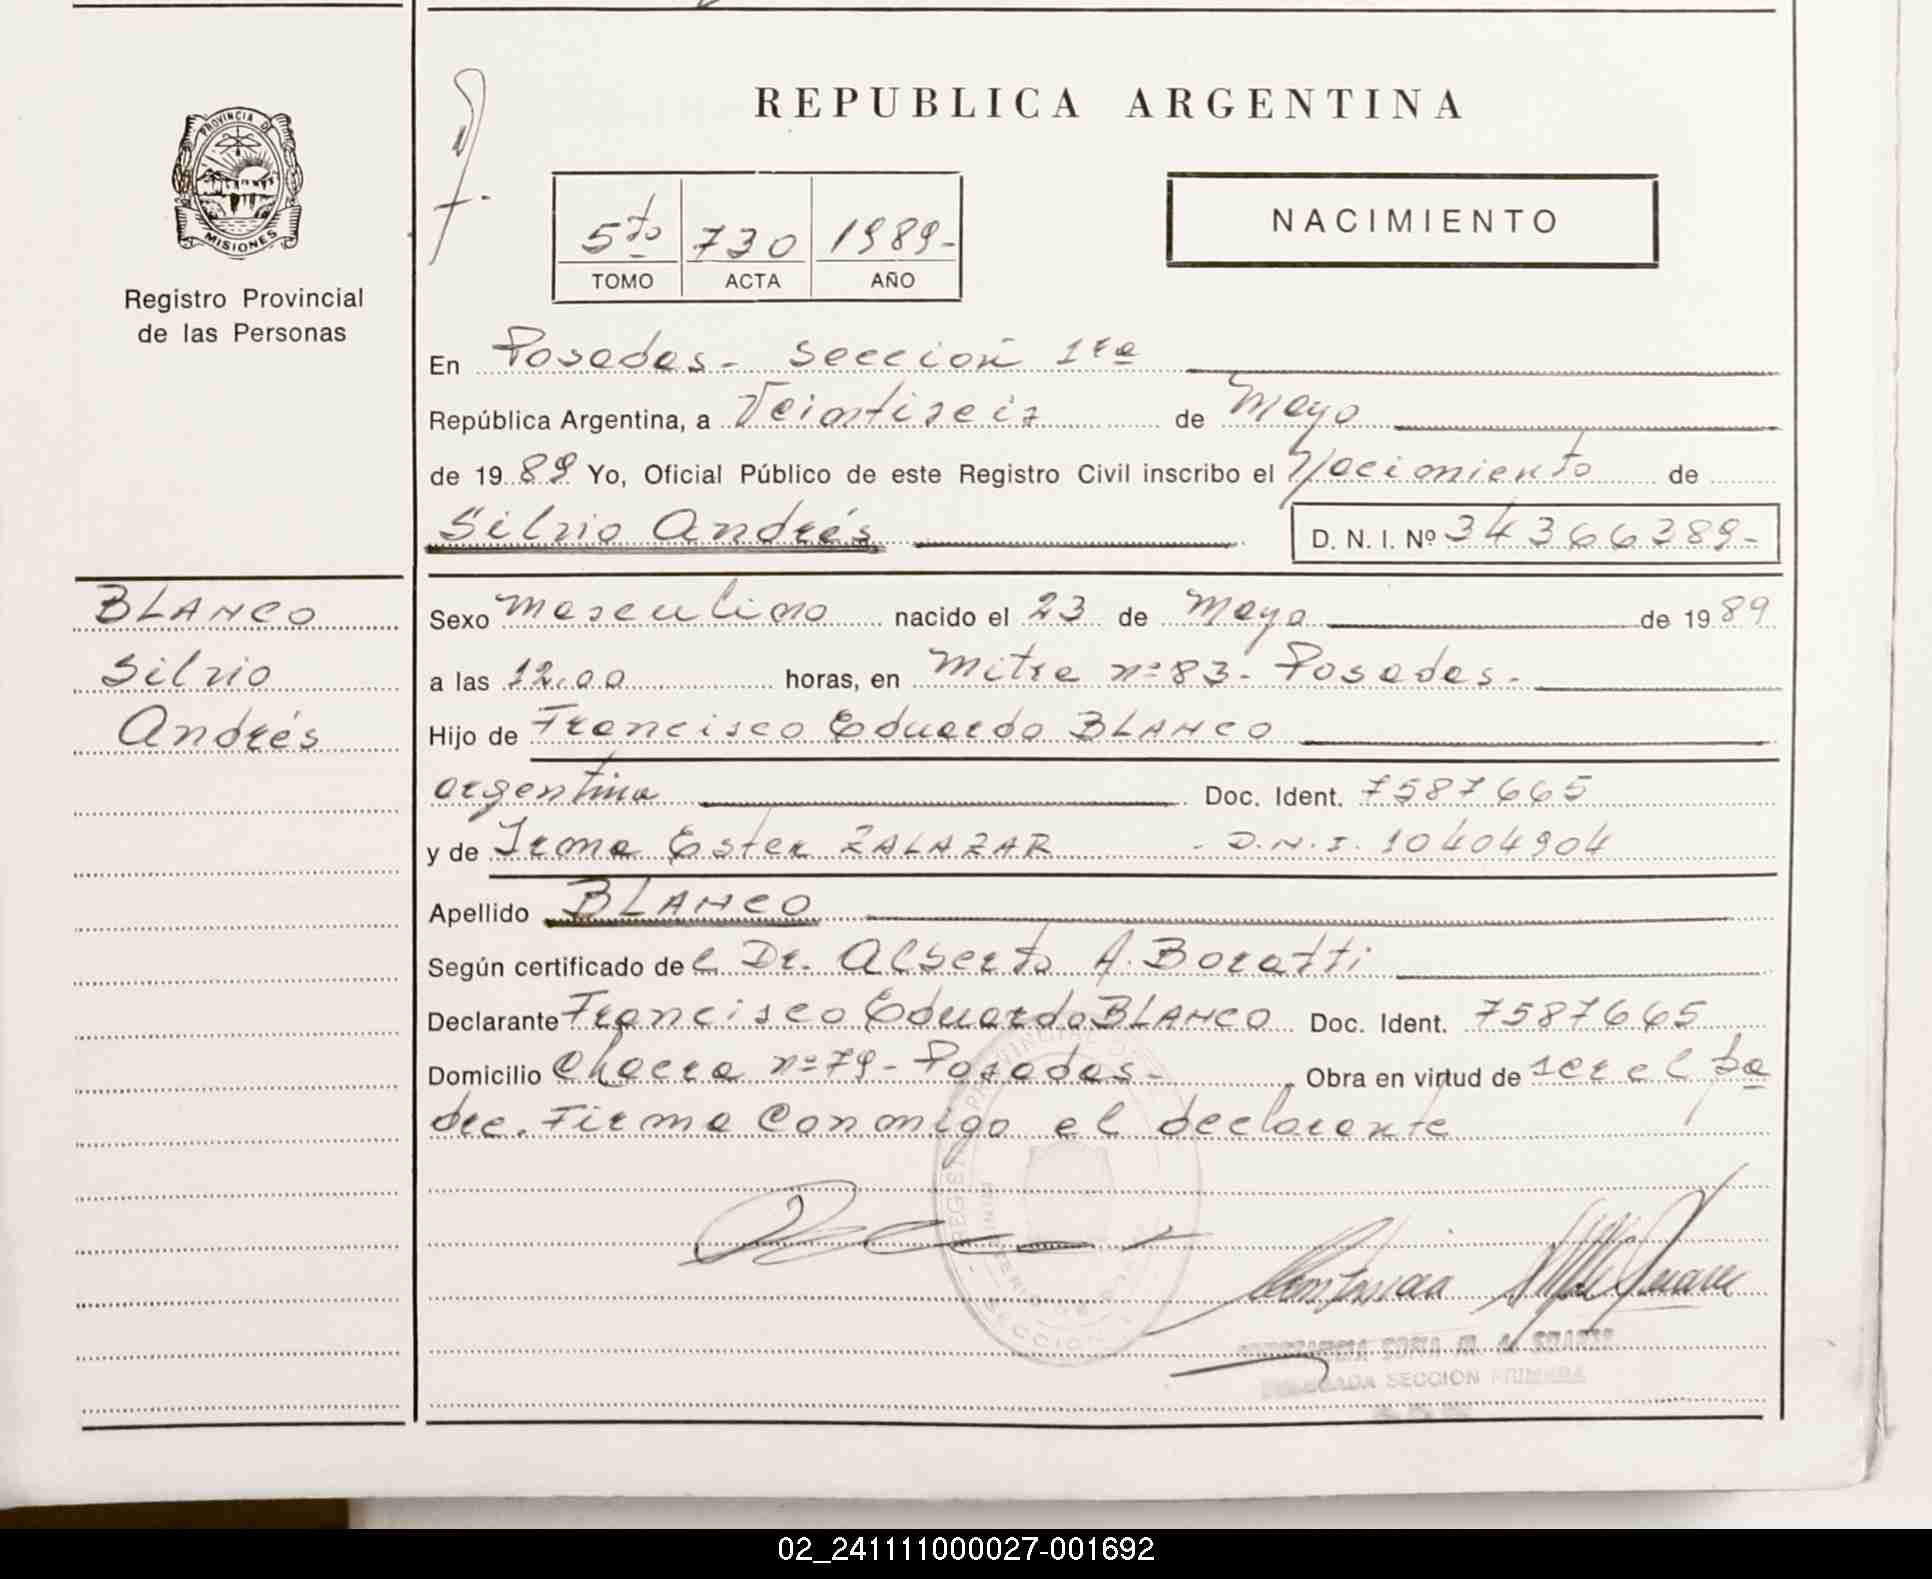 REPUBLICA ARGENTINA
PROVINCIA DE
MISIONES
Registro Provincial
de las Personas
5to 730 1989-
TOMO ACTA AÑO
NACIMIENTO
En Posadas - Sección 1ra
República Argentina, a Veintiseis de Mayo
de 1989 Yo, Oficial Público de este Registro Civil inscribo el Nacimiento de
Silvio Andrés D. N. I. Nº 34366389-
BLANCO
Silvio
Andrés
Sexo Masculino nacido el 23 de Mayo de 1989
a las 12.00 horas, en Mitre nº 83 - Posadas -
Hijo de Francisco Eduardo BLANCO
argentina Doc. Ident. 7587665
y de Irma Ester ZALAZAR - D.N.I. 10404904
Apellido BLANCO
Según certificado del Dr. Alberto A. Boratti
Declarante Francisco Eduardo BLANCO Doc. Ident. 7587665
Domicilio Chacra nº 79 - Posadas - Obra en virtud de ser el pa
dre. Firma conmigo el declarante
SOFIA M. de SUAREZ
DELEGADA SECCION PRIMERA
02_241111000027-001692